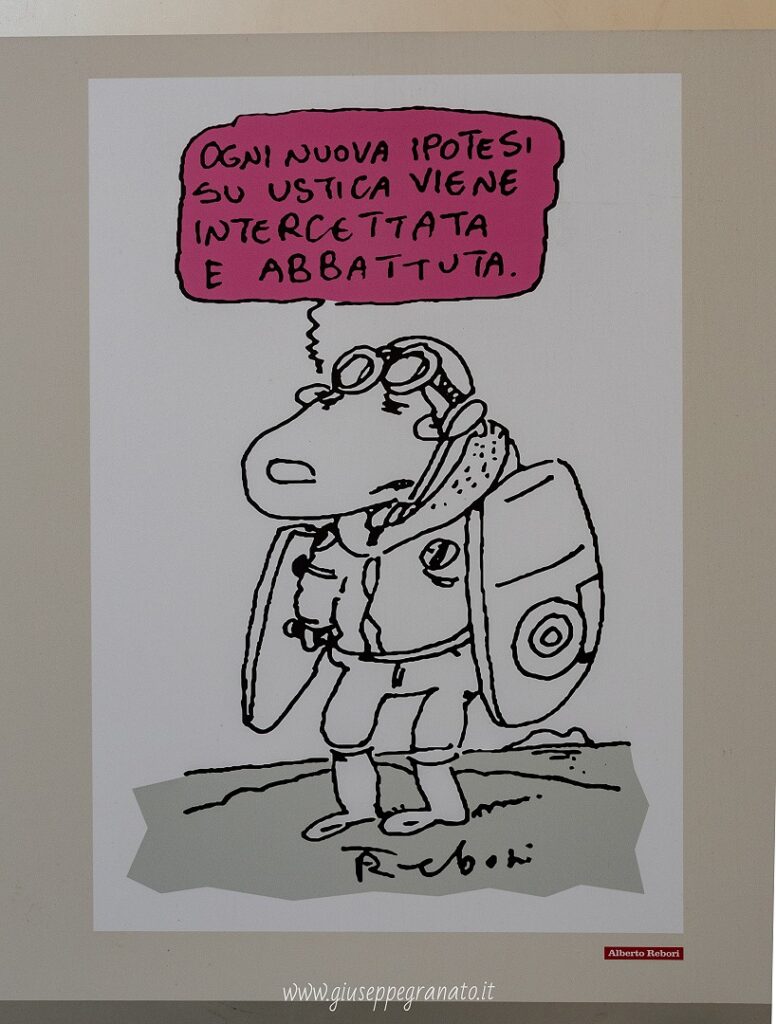 OGNI NUOVA IPOTESI
SU USTICA VIENE
INTERCETTATA
E ABBATTUTA.
Rebori
Alberto Rebori
www.giuseppegranato.it